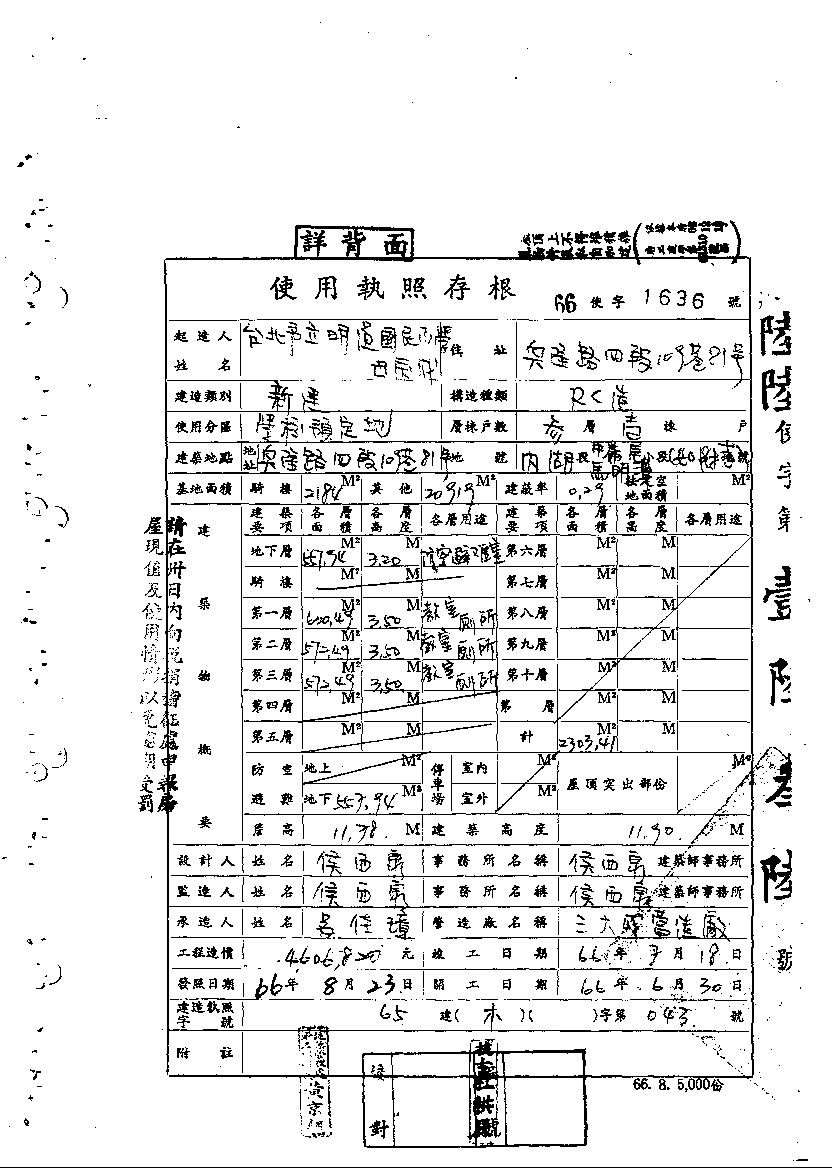 詳背面
使用執照存根
66 使字 1636 號
起造人姓名 台北市立明道國民小學 住址 吳 路四段109巷81號
建造類別 新建 構造種類 RC造
使用分區 學校預定地 層棟戶數 參層壹棟 戶
建築地點 地址 路四段109巷81號 地號 內湖段
基地面積 騎樓 2184 M² 其他 20919 M² 建蔽率 0.29 M²
建築要項 各層面積 各層高度 各層用途 建築要項 各層面積 各層高度 各層用途
地下層 557.94 M² 3.20 M 第六層 M² M
騎樓 M² M 第七層 M² M
第一層 600.49 M² 3.50 M 教室廁所 第八層 M² M
第二層 572.49 M² 3.50 M 教室廁所 第九層 M² M
第三層 572.49 M² 3.50 M 教室廁所 第十層 M² M
第四層 M² M 第 層 M² M
第五層 M² M 計 2303.41 M² M
建築物概要
防空避難 地上 M² 停車場 室內 M² 屋頂突出部份 M²
地下 557.94 M² 室外 M²
簷高 11.38 M 建築高度 11.90 M
設計人 姓名 侯西泉 事務所名稱 侯西泉 建築師事務所
監造人 姓名 侯西泉 事務所名稱 侯西泉 建築師事務所
承造人 姓名 吳佳璋 營造廠名稱 三大 營造廠
工程造價 4606,820 元 竣工日期 66年 月18日
發照日期 66年8月23日 開工日期 66年6月30日
建造執照字號 65 建(木)( )字第 043 號
附註
校對
66.8.5,000份
請在卅日內向稅捐稽征處申報房屋現值及使用情形以免逾期受罰
陸陸使字第壹陸叁陸號